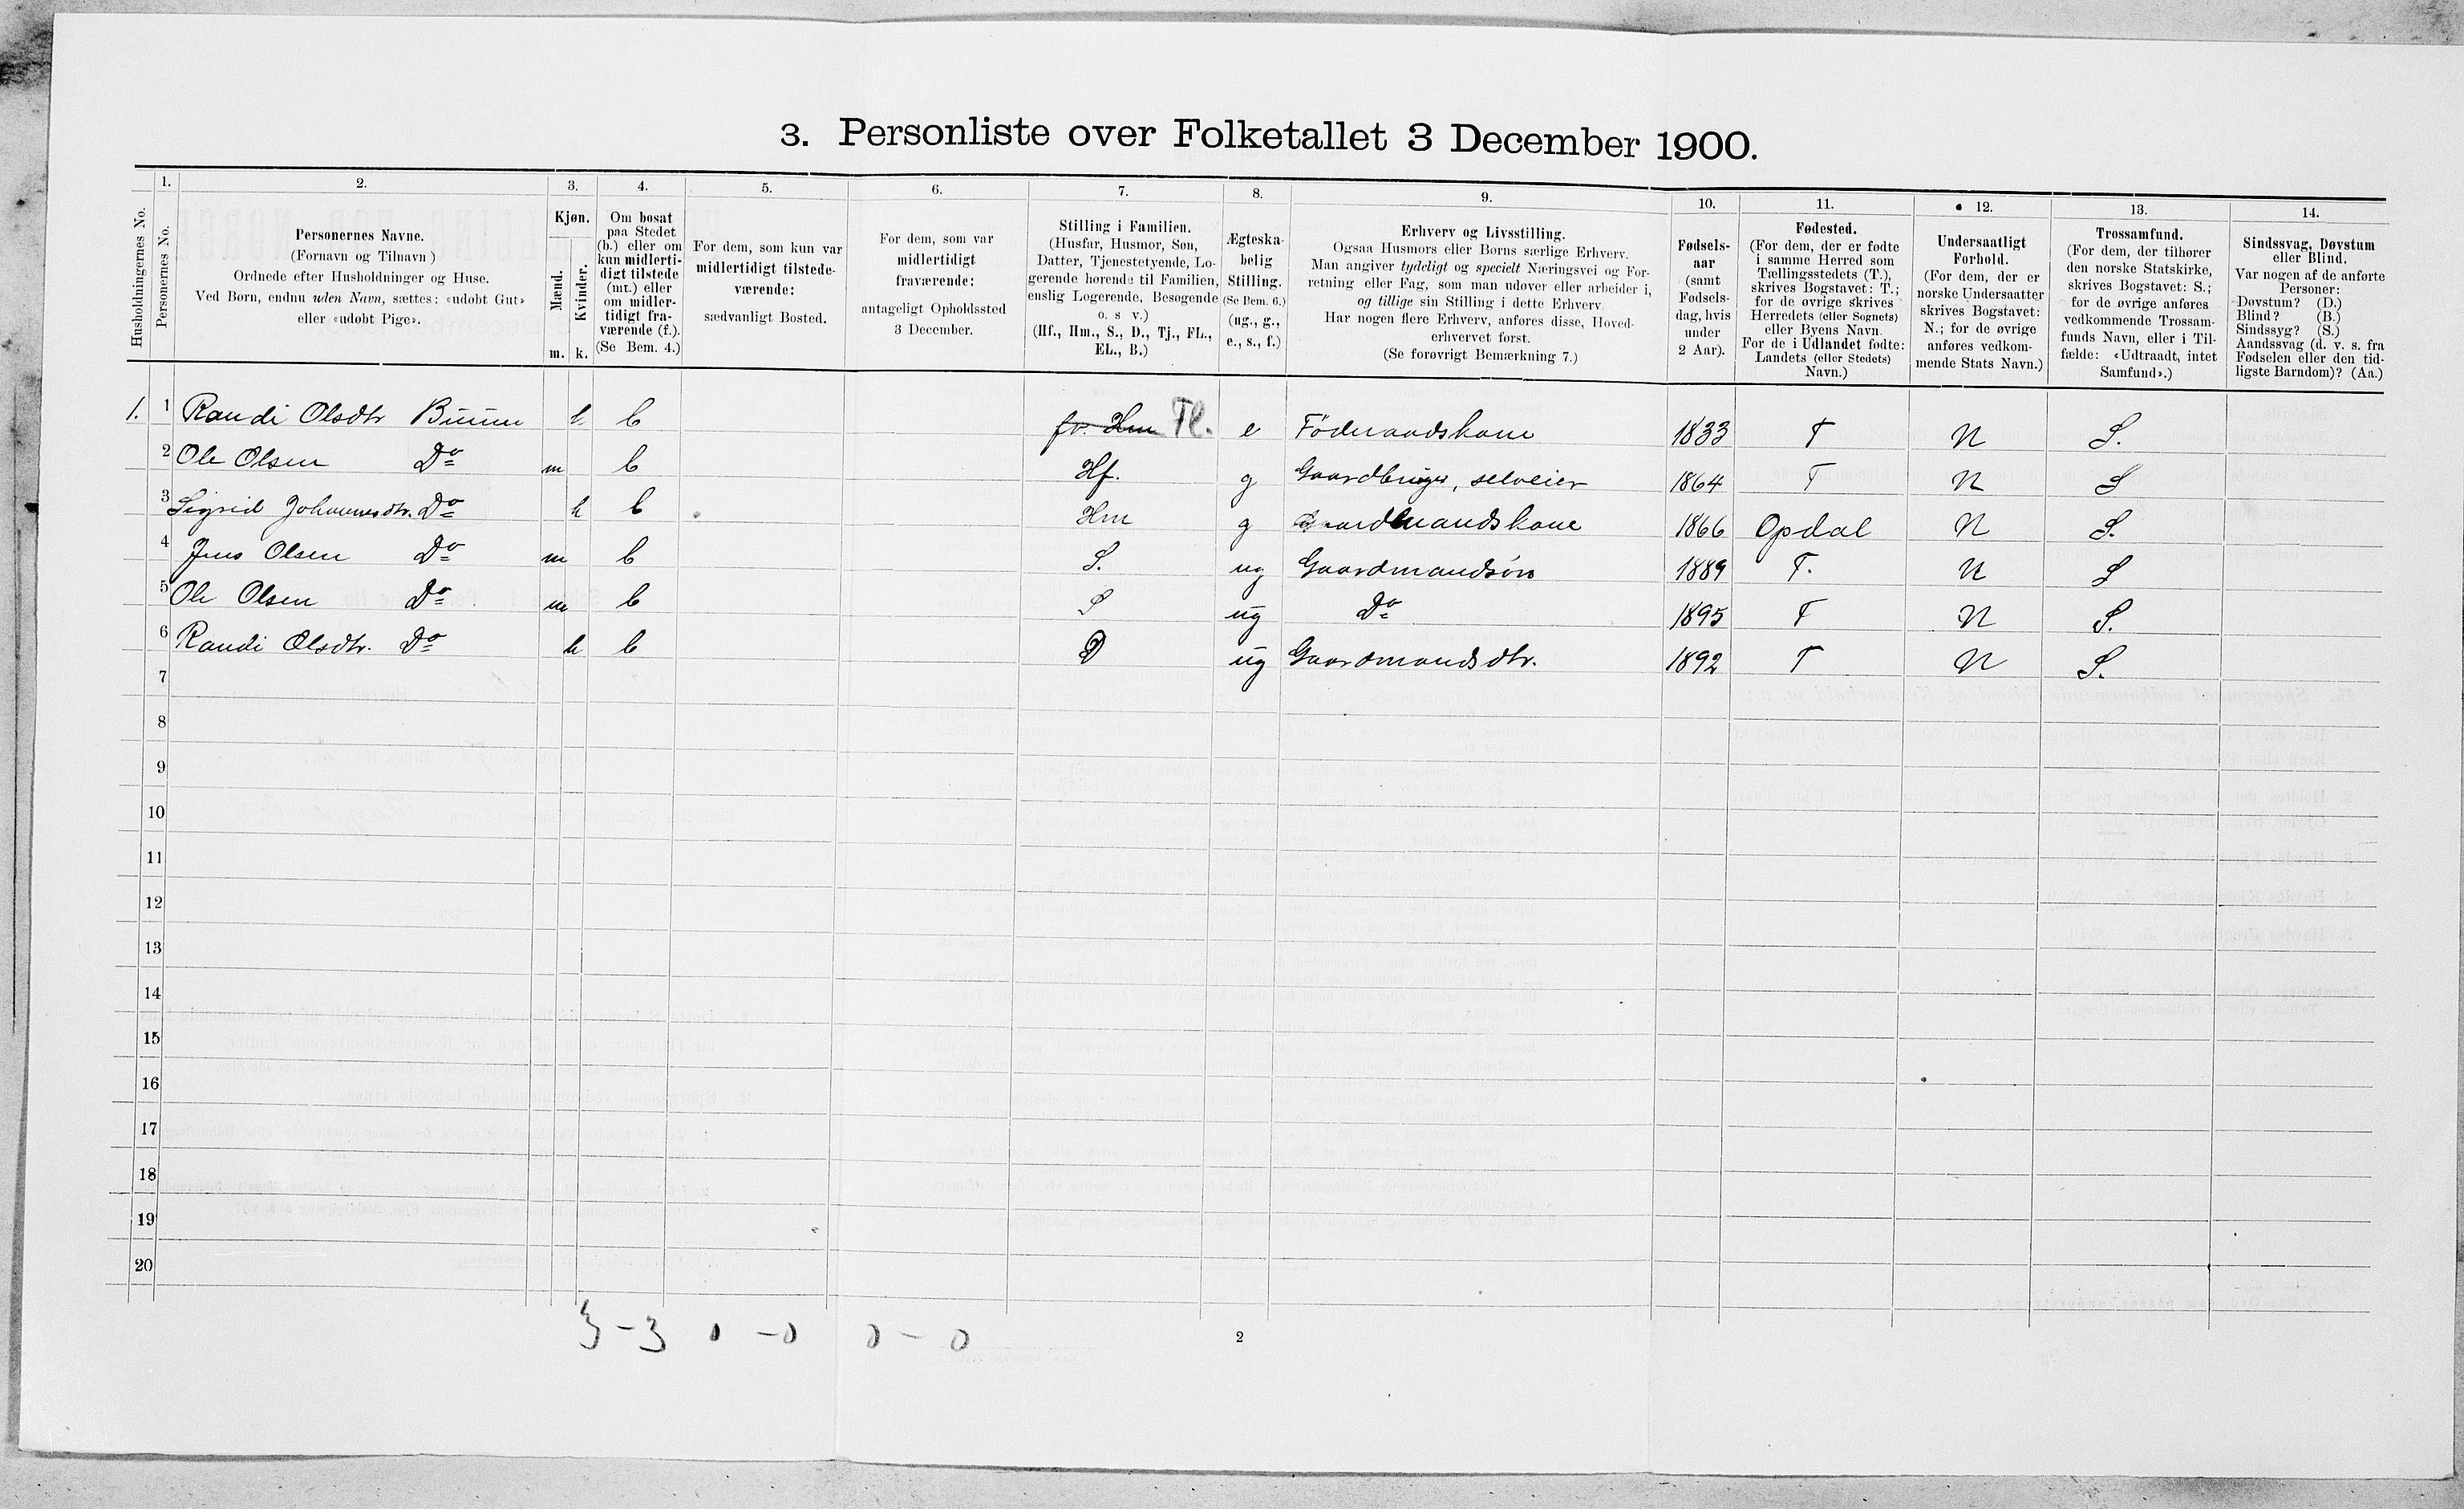 3. Personliste over Folketallet 3 December 1900.
Husholdningernes No.
1.
Personernes No.
2.
Personernes Navne.
(Fornavn og Tilnavn)
Ordnede efter Husholdninger og Huse.
Ved Børn, endnu uden Navn, sættes: «udøbt Gut»
eller «udøbt Pige».
3.
Kjøn.
Mænd.
Kvinder.
m. k.
4.
Om bosat
paa Stedet
(b.) eller om
kun midlerti-
digt tilstede
(mt.) eller
om midler-
tidigt fra-
værende (f.).
(Se Bem. 4.)
5.
For dem, som kun var
midlertidigt tilstede-
værende:
sædvanligt Bosted.
6.
For dem, som var
midlertidigt
fraværende:
antageligt Opholdssted
3 December.
7.
Stilling i Familien.
(Husfar, Husmor, Søn,
Datter, Tjenestetyende, Lo-
gerende hørende til Familien,
enslig Logerende, Besøgende
o. s v.)
(Hf., Hm., S., D., Tj., FL.,
EL., B.)
8.
Ægteska-
belig
Stilling.
(Se Bem. 6.)
(ug., g.,
e., s., f.)
9.
Erhverv og Livsstilling.
Ogsaa Husmors eller Børns særlige Erhverv.
Man angiver tydeligt og specielt Næringsvei og For-
retning eller Fag, som man udøver eller arbeider i,
og tillige sin Stilling i dette Erhverv.
Har nogen flere Erhverv, anføres disse, Hoved-
erhvervet først.
(Se forøvrigt Bemærkning 7.)
10.
Fødsels-
aar
(samt
Fødsels-
dag, hvis
under
2 Aar).
11.
Fødested.
(For dem, der er fødte
i samme Herred som
Tællingsstedets (T.),
skrives Bogstavet: T.;
for de øvrige skrives
Herredets (eller Sognets)
eller Byens Navn.
For de i Udlandet fødte:
Landets (eller Stedets)
Navn.)
12.
Undersaatligt
Forhold.
(For dem, der er
norske Undersaatter
skrives Bogstavet:
N.; for de øvrige
anføres vedkom-
mende Stats Navn.)
13.
Trossamfund.
(For dem, der tilhører
den norske Statskirke,
skrives Bogstavet: S.;
for de øvrige anføres
vedkommende Trossam-
funds Navn, eller i Til-
fælde: «Udtraadt, intet
Samfund».)
14.
Sindssvag, Døvstum
eller Blind.
Var nogen af de anførte
Personer:
Døvstum? (D.)
Blind? (B.)
Sindssyg? (S.)
Aandssvag (d. v. s. fra
Fødselen eller den tid-
ligste Barndom)? (Aa.)
1. 1 Randi Olsdtr k b fr. Hm Fl. e Föderaadskone 1833 T N S.
2 Ole Olsen Do m b Hf. g Gaardbruger, selveier 1864 T N S
3 Sigrid Johannesdtr. Do k b Hm g Gaardmandskone 1866 Opdal N S.
4 Jens Olsen Do m b S. ug Gaardmandsön 1889 T. N S
5 Ole Olsen Do m b S ug Do 1895 T N S.
6 Randi Olsdtr. Do k b D ug Gaardmandsdtr. 1892 T N S.
7
8
9
10
11
12
13
14
15
16
17
18
19
20
3 - 3 0 - 0 0 - 0
2